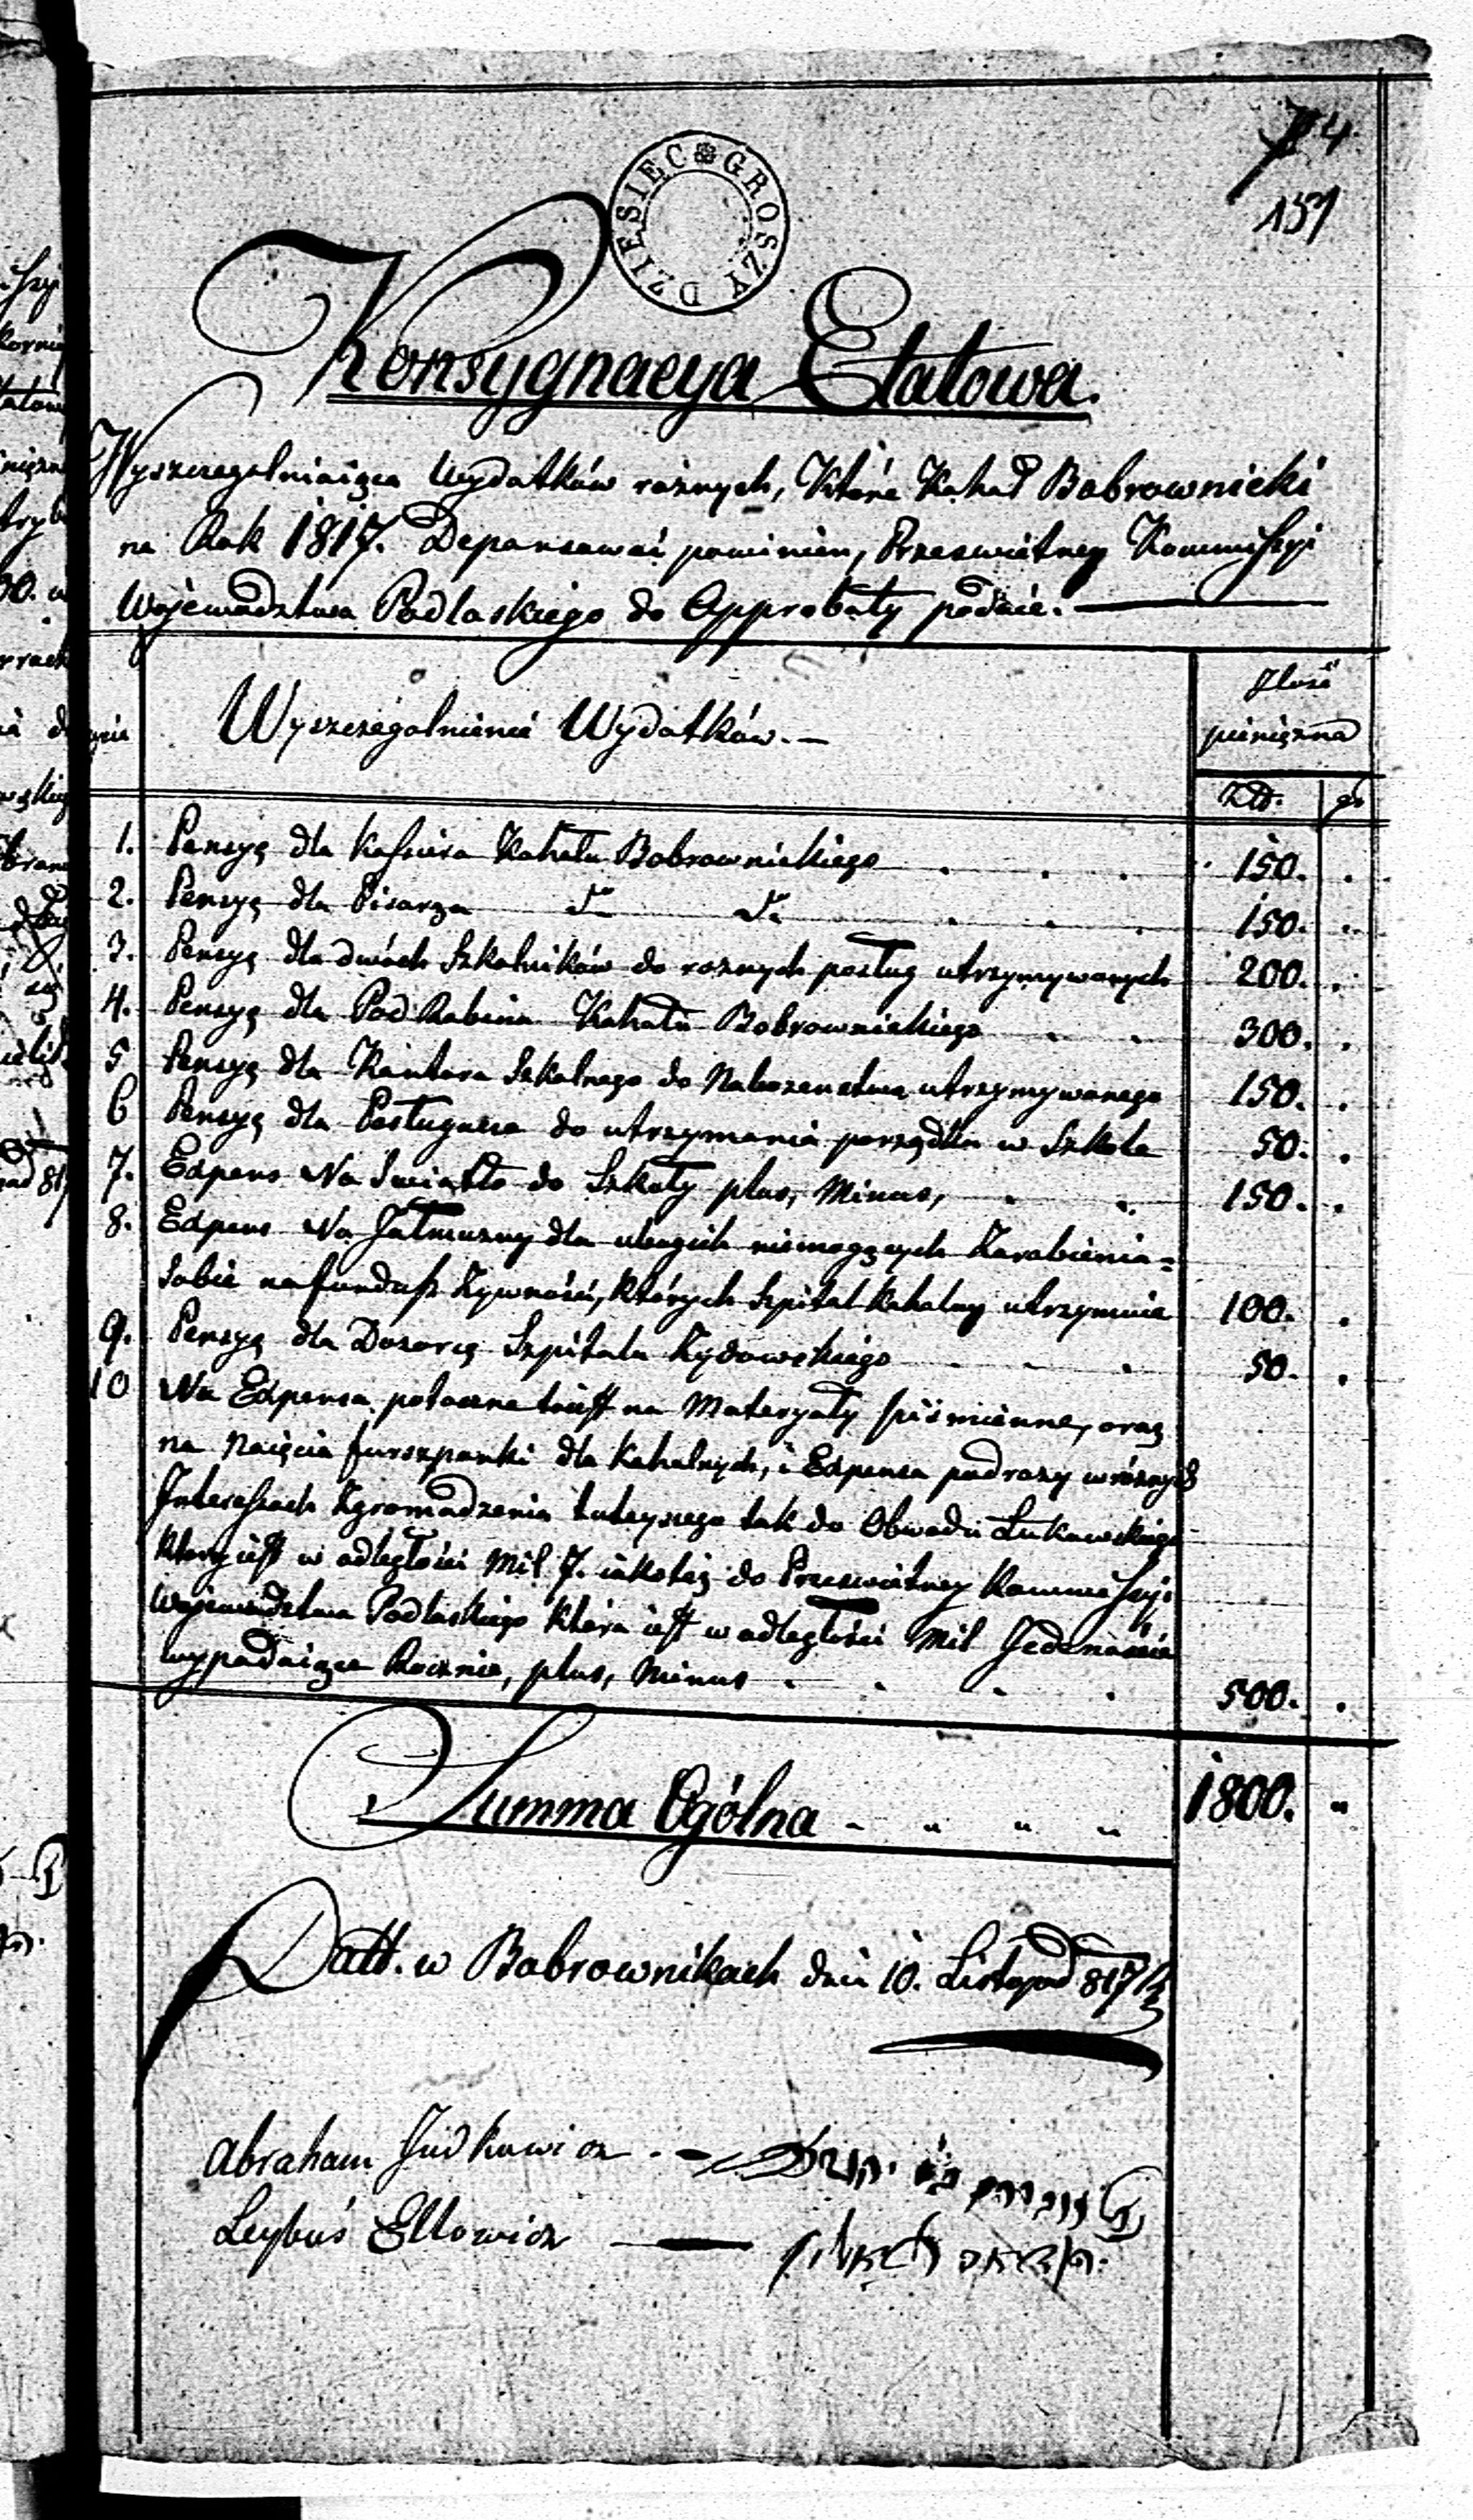 4
157
DZIESIĘC GROSZY
Konsygnacya Etatowa.
Wyszczegolniaiąca Wydatków roznych, Które Kahał Bobrownicki
na Rok 1817. Depansować powinien, Przeswiètney Kommissyi
Województwa Podlaskiego do Approbaty podaie.
Wyszczegolnienie Wydatków.
Ilość
pieniężna
Złł. gr
1. Pensyą dla Kassiera Kahału Bobrownickiego . . . 150. .
2. Pensyą dla Pisarza d- d- . . . 150. .
3. Pensyą dla dwóch Szkolników do roznych posług utrzymywanych 200. .
4. Pensyą dla Pod Rabina Kahału Bobrownickiego . . 300. .
5 Pensyą dla Kantora Szkolnego do Nabozenstwa utrzymywanego 150. .
6 Pensyą dla Posługacza do utrzymania porządku w Szkole 50. .
7. Expens Na Swiatło do Szkoły plus, Minus, . . 150. .
8. Expens Na Jałmuzny dla ubogich niemogących Zarobienia=
Sobie na fundusz Zywności, których Szpital Kahalny utrzymuie 100. .
9. Pensyą dla Dozorcę Szpitala Zydowskiego . . . 50. .
10 Na Expensa potoczne to iest na Materyały piśmienne, oraz
na Naięcia furszpanki dla Kahalnych, i Expensa podrozy w róznych
Interessach Zgromadzenia tuteyszego tak do Obwodu Łukowskiego
który iest w odległości Mil 7. iakoteż do Prześwietney Kommissyi
Województwa Podlaskiego która iest w odległości Mil Jedenaście
wypadaiące Rocznie, plus, Minus . . . . 500. .
Summa Ogólna 1800. "
Datt. w Bobrownikach dnia 10. Listopad 817
Abraham Judkowicz
Leybuś Ellowicz